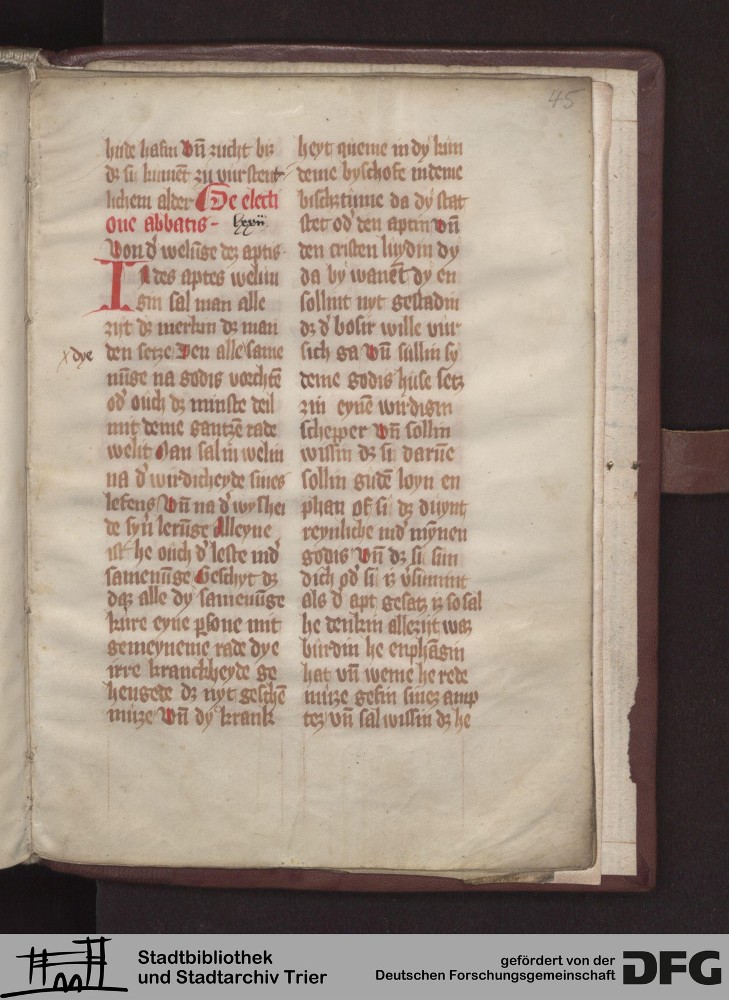 45
hude hafin vñ zucht biz
dz si kumēt zu vurstent
lichem alder De electi
one abbatis - lxxii
Von d' welūge dez aptis
In des aptes weliu
gin sal man alle
zijt dz merkin dz man
x dye
den setze Den alle same
nūge na godis vorchtē
od' ouch dz minste deil
mit deme gantzē rade
welit Man sal in welin
na d' wirdicheyde sines
lefens Vñ na d' wyshei
de syn' lerūge Alleyne
ist he ouch d' leste ind'
samenūge Geschyt dz
daz alle dy samenūge
kure eyne psone mit
gemeyneme rade dye
irre kranckheyde ge
heugede dz nyt geschē
muze Vñ dy krank
heyt queme in dy kun
deme byschofe in deme
bischztume da dy stat
stet od' den aptin vñ
den cristen luydin dy
da by wanēt dy en
sollint nyt gestadin
dz d' bosir wille vur
sich ga Vñ sullin sy
deme godis huse setz
zin eynē wirdigin
schepper Vñ sollin
wissin dz si darūe
sollin gudē loyn en
phan of si dz duynt
reynliche ind' mỹnen
godis Vñ dz si sun
dich od' si iz v'sumint
als d' apt gesatz iz so sal
he denkin allezijt waz
burdin he enphāgin
hat vñ weme he rede
muze gefin sinez amp
tez vñ sal wissin dz he
Stadtbibliothek
und Stadtarchiv Trier
gefördert von der
Deutschen Forschungsgemeinschaft
DFG